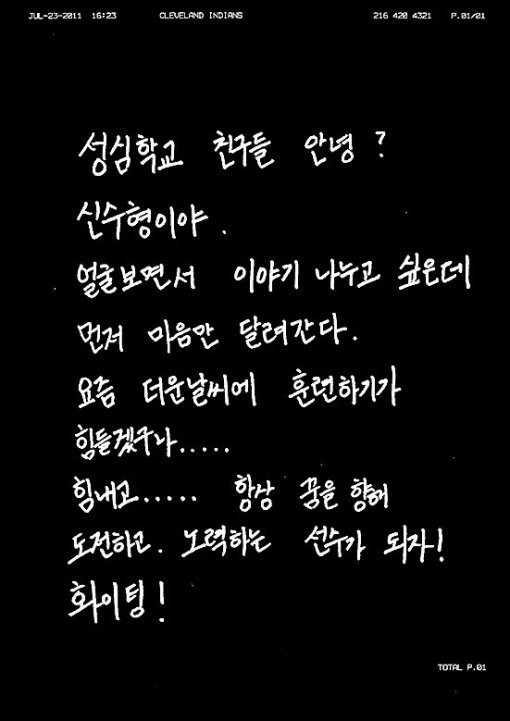 JUL-23-2011 16:23 CLEVELAND INDIANS 216 420 4321 P.01/01
성심학교 친구들 안녕?
신수형이야.
얼굴보면서 이야기 나누고 싶은데
먼저 마음만 달려간다.
요즘 더운날씨에 훈련하기가
힘들겠구나.....
힘내고..... 항상 꿈을 향해
도전하고. 노력하는 선수가 되자!
화이팅!
TOTAL P.01